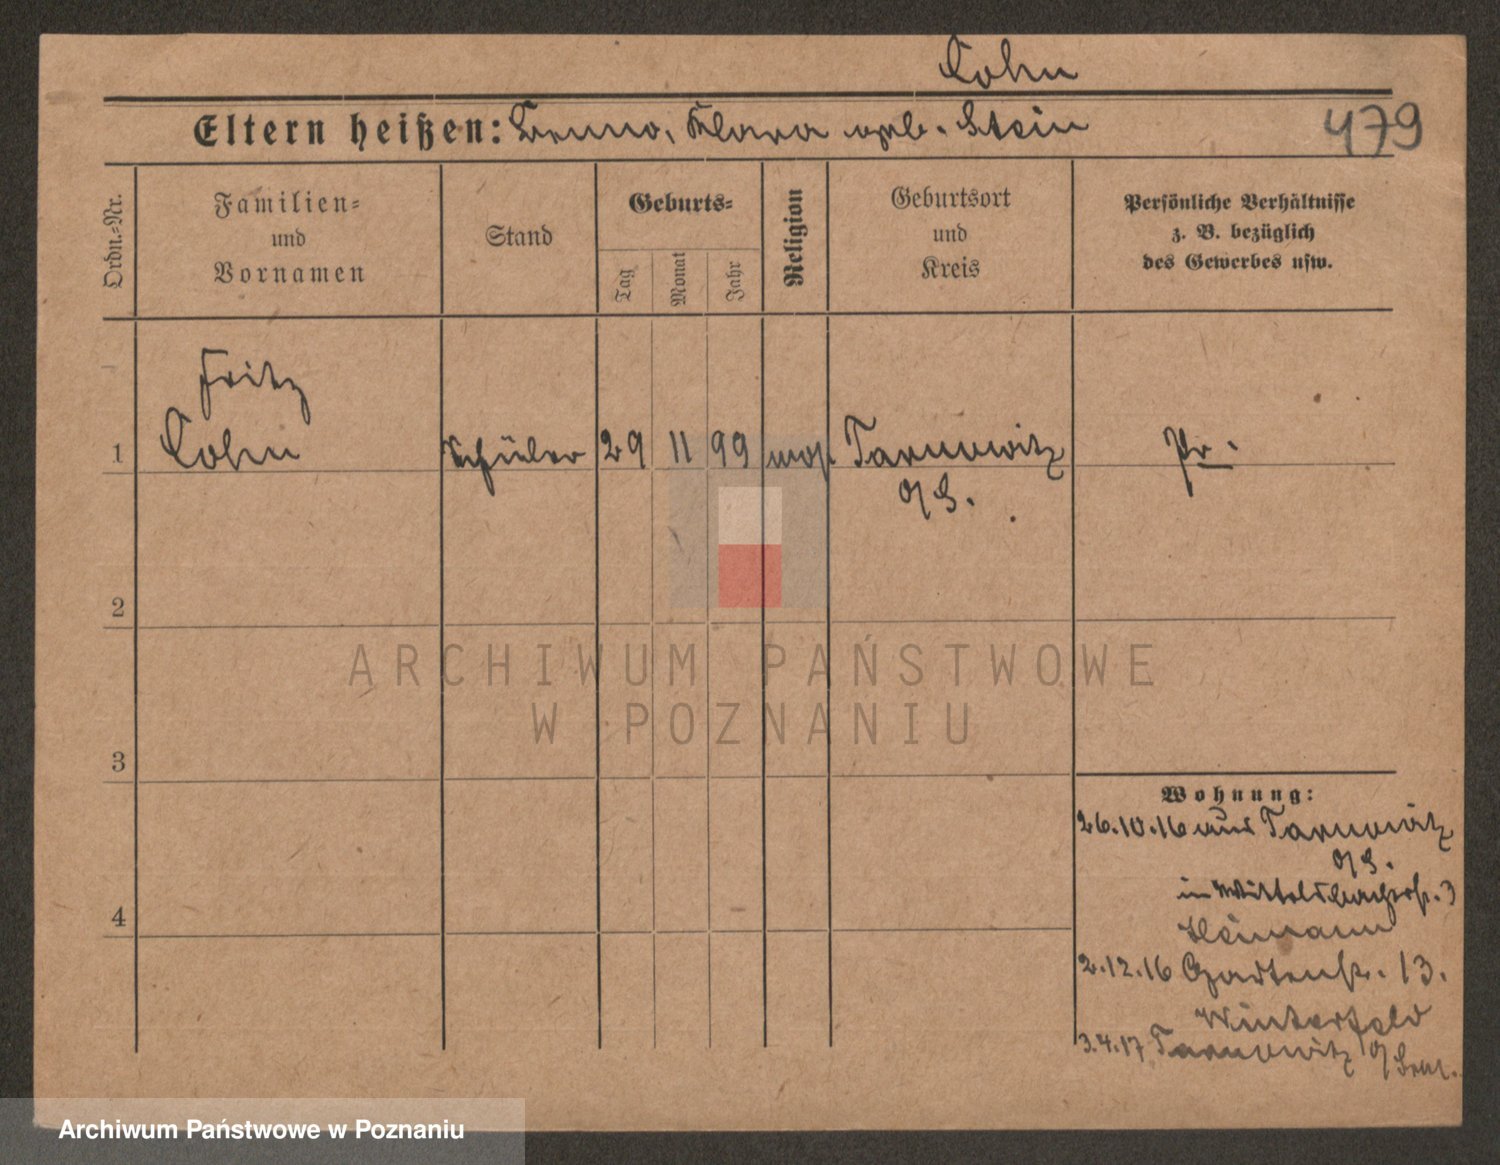 Cohn
Eltern heißen: Bruno, Klara geb. Stein
479
Ordn.-Nr.
Familien-
und
Vornamen
Stand
Geburts-
Tag
Monat
Jahr
Religion
Geburtsort
und
Kreis
Persönliche Verhältnisse
z. B. bezüglich
des Gewerbes usw.
Fritz
1 Cohn Schüler 29 11 99 mos. Tarnowitz Pr.
O/S.
2
ARCHIWUM PAŃSTWOWE
W POZNANIU
3
Wohnung:
26.10.16 aus Tarnowitz
O/S.
in Wittelsbacherstr. 3
Heimann
4
2.12.16 Gartenstr. 13.
Winterfeld
3.4.17 Tarnowitz
Archiwum Państwowe w Poznaniu